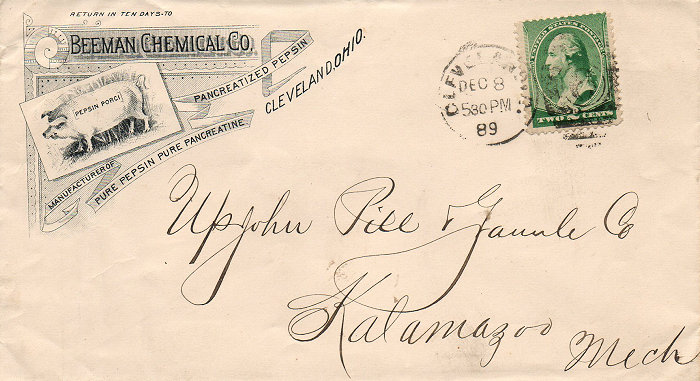 RETURN IN TEN DAYS TO
BEEMAN CHEMICAL CO.
PANCREATIZED PEPSIN
CLEVELAND, OHIO.
PEPSIN PORCI
MANUFACTURER OF
PURE PEPSIN PURE PANCREATINE
CLEVELAN
DEC 8
530 PM
89
UNITED STATES POSTAGE
TWO CENTS
Upjohn Pill & Co
Kalamazoo
Mech